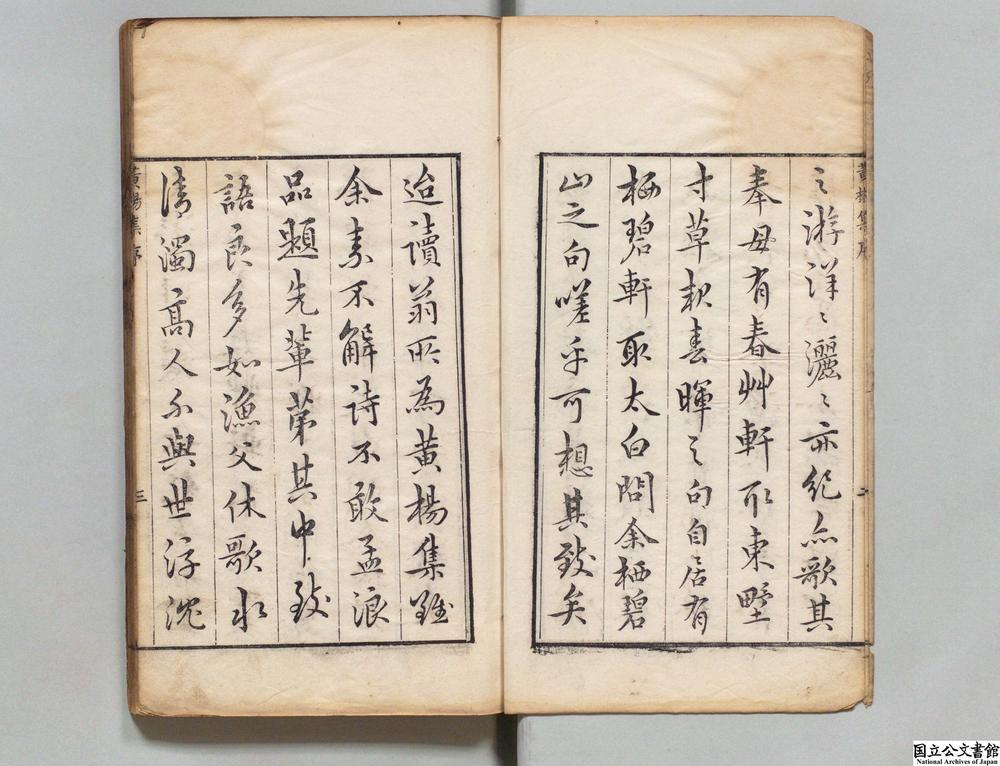 之游洋〻灑〻亦紀亦歌其
奉母有春艸軒取東野
寸草報春暉之句自居有
栖碧軒取太白問余栖碧
山之句嗟乎可想其致矣
迨讀翁所為黃楊集雖
余素不解詩不敢孟浪
品題先輩第其中致
語良多如漁父休歌水
清濁高人不與世浮沈
黃楊集序
二
黃楊集序
三
国立公文書館
National Archives of Japan